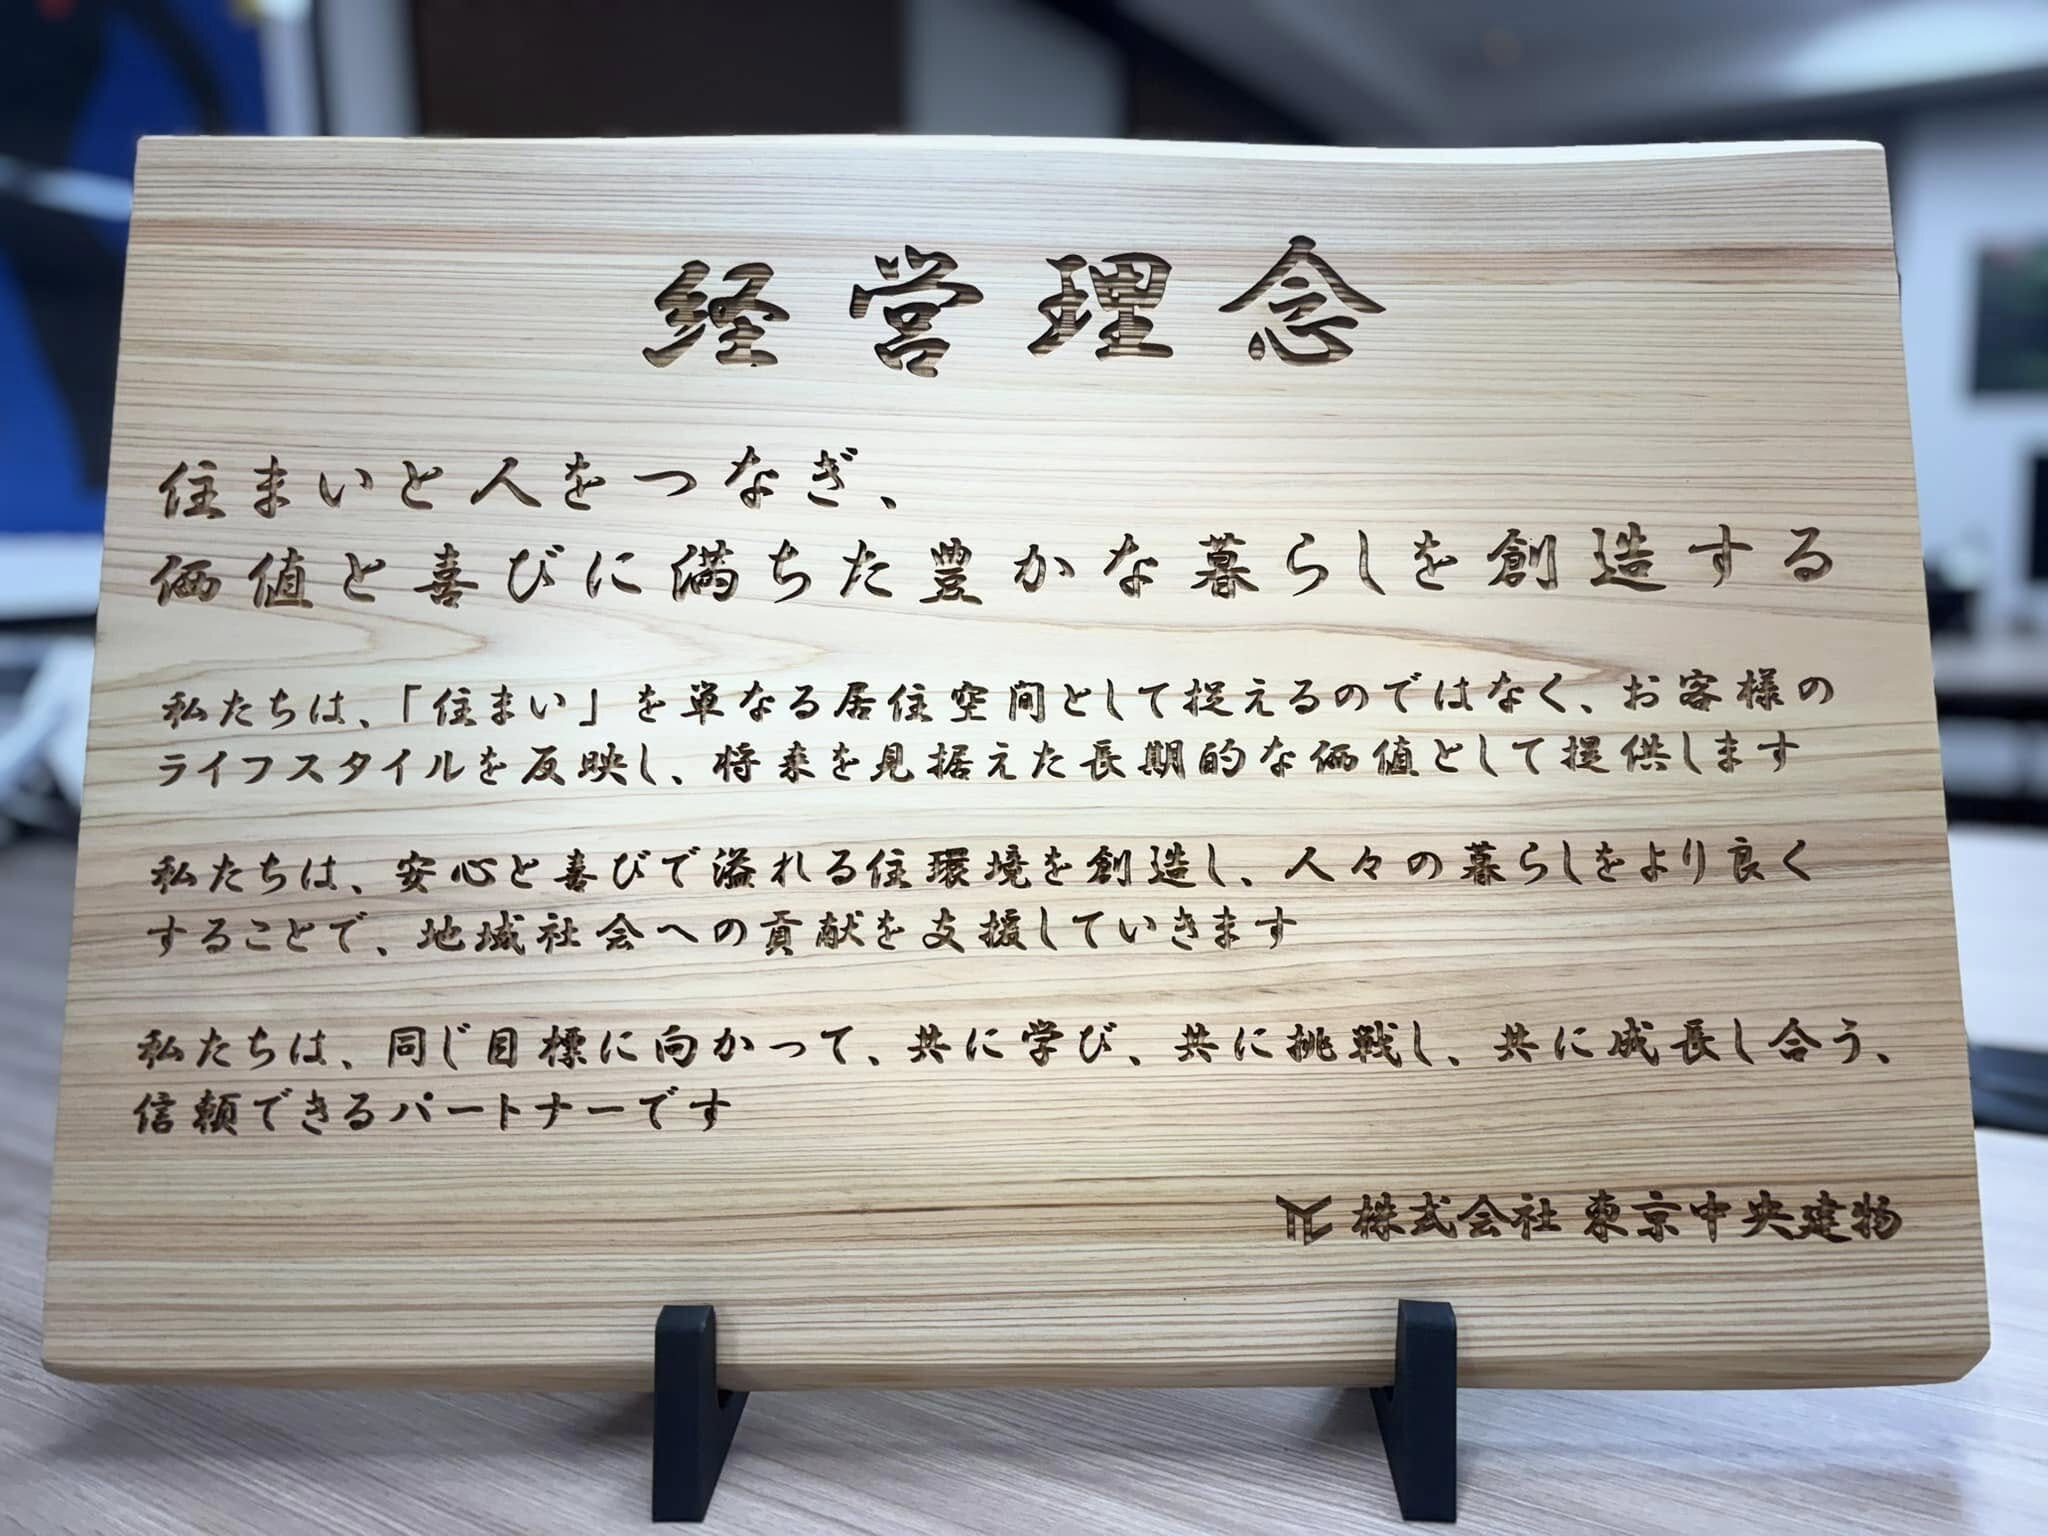 経営理念
住まいと人をつなぎ、
価値と喜びに満ちた豊かな暮らしを創造する
私たちは、「住まい」を単なる居住空間として捉えるのではなく、お客様の
ライフスタイルを反映し、将来を見据えた長期的な価値として提供します
私たちは、安心と喜びで溢れる住環境を創造し、人々の暮らしをより良く
することで、地域社会への貢献を支援していきます
私たちは、同じ目標に向かって、共に学び、共に挑戦し、共に成長し合う、
信頼できるパートナーです
株式会社 東京中央建物